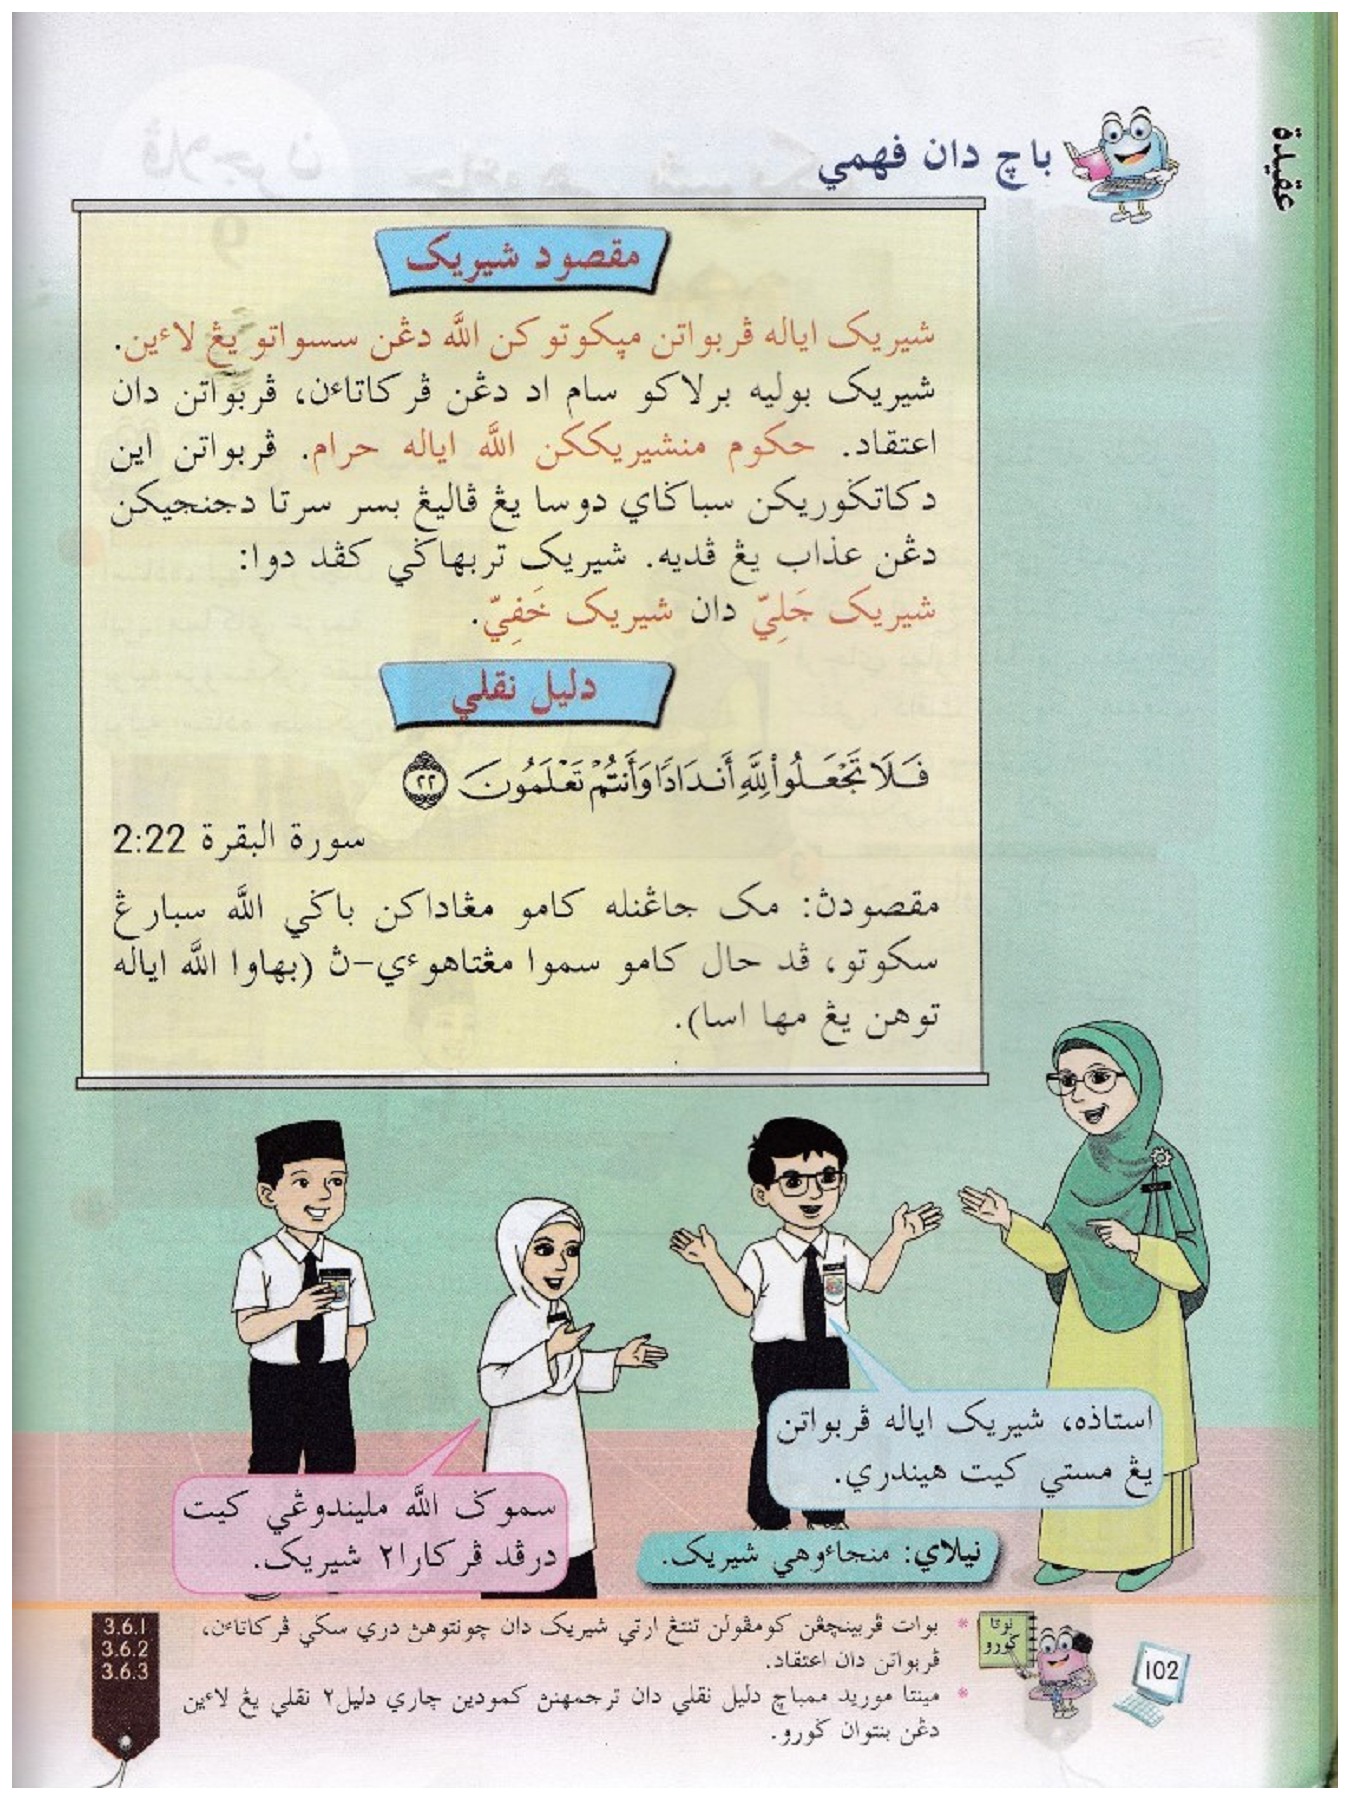 عقيدة
باچ دان فهمي
مقصود شيريک
شيريک اياله ڤربواتن مڽکوتوکن الله دڠن سسواتو يڠ لاءين.
شيريک بوليه برلاکو سام اد دڠن ڤرکاتاءن، ڤربواتن دان
اعتقاد. حکوم منشيريککن الله اياله حرام. ڤربواتن اين
دکاتݢوريکن سباݢاي دوسا يڠ ڤاليڠ بسر سرتا دجنجيکن
دڠن عذاب يڠ ڤديه. شيريک تربهاݢي کڤد دوا:
شيريک جَلِيّ دان شيريک خَفِيّ.
دليل نقلي
فَلَا تَجْعَلُوا۟ لِلَّهِ أَندَادًا وَأَنتُمْ تَعْلَمُونَ ٢٢
سورة البقرة 2:22
مقصودڽ: مک جاڠنله کامو مڠاداکن باݢي الله سبارڠ
سکوتو، ڤد حال کامو سموا مڠتاهوءي-ڽ (بهاوا الله اياله
توهن يڠ مها اسا).
استاذه، شيريک اياله ڤربواتن
يڠ مستي کيت هيندري.
سموݢ الله مليندوڠي کيت
درڤد ڤرکارا٢ شيريک.
نيلاي: منجاءوهي شيريک.
نوتا
ݢورو
* بوات ڤربينچڠن کومڤولن تنتڠ ارتي شيريک دان چونتوهڽ دري سݢي ڤرکاتاءن،
ڤربواتن دان اعتقاد.
* مينتا موريد ممباچ دليل نقلي دان ترجمهنڽ کمودين چاري دليل٢ نقلي يڠ لاءين
دڠن بنتوان ݢورو.
3.6.1
3.6.2
3.6.3
102